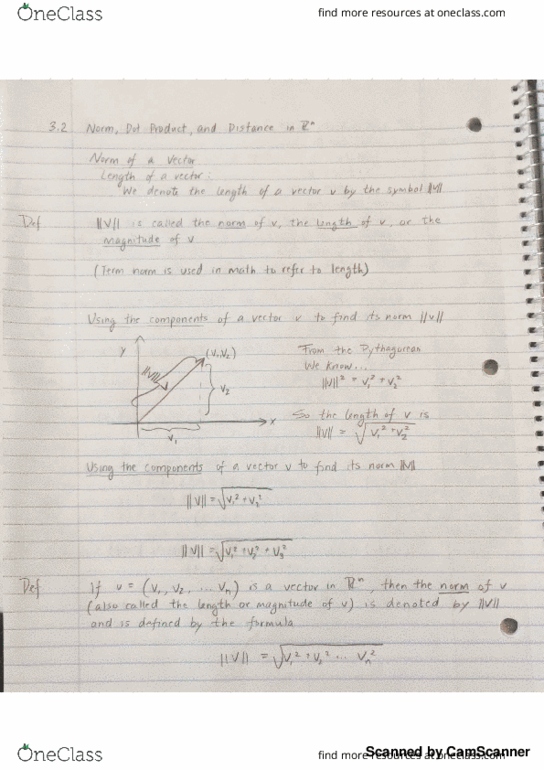 OneClass
find more resources at oneclass.com
3.2 Norm, Dot Product, and Distance in ℝⁿ
Norm of a Vector
Length of a vector:
We denote the length of a vector v by the symbol ||v||
Def ||V|| is called the norm of v, the length of v, or the
magnitude of v
(Term norm is used in math to refer to length)
Using the components of a vector v to find its norm ||v||
y
||V||
(V₁,V₂)
V₂
x
V₁
From the Pythagorean
We know...
||V||² = V₁² + V₂²
So the length of v is
||V|| = √V₁² + V₂²
Using the components of a vector v to find its norm ||V||
||V|| = √V₁² + V₂²
||V|| = √V₁² + V₂² + V₃²
Def If v = (V₁, V₂, ... Vₙ) is a vector in ℝⁿ, then the norm of v
(also called the length or magnitude of v) is denoted by ||V||
and is defined by the formula
||V|| = √V₁² + V₂² ... Vₙ²
OneClass
find more resources at oneclass.com
Scanned by CamScanner